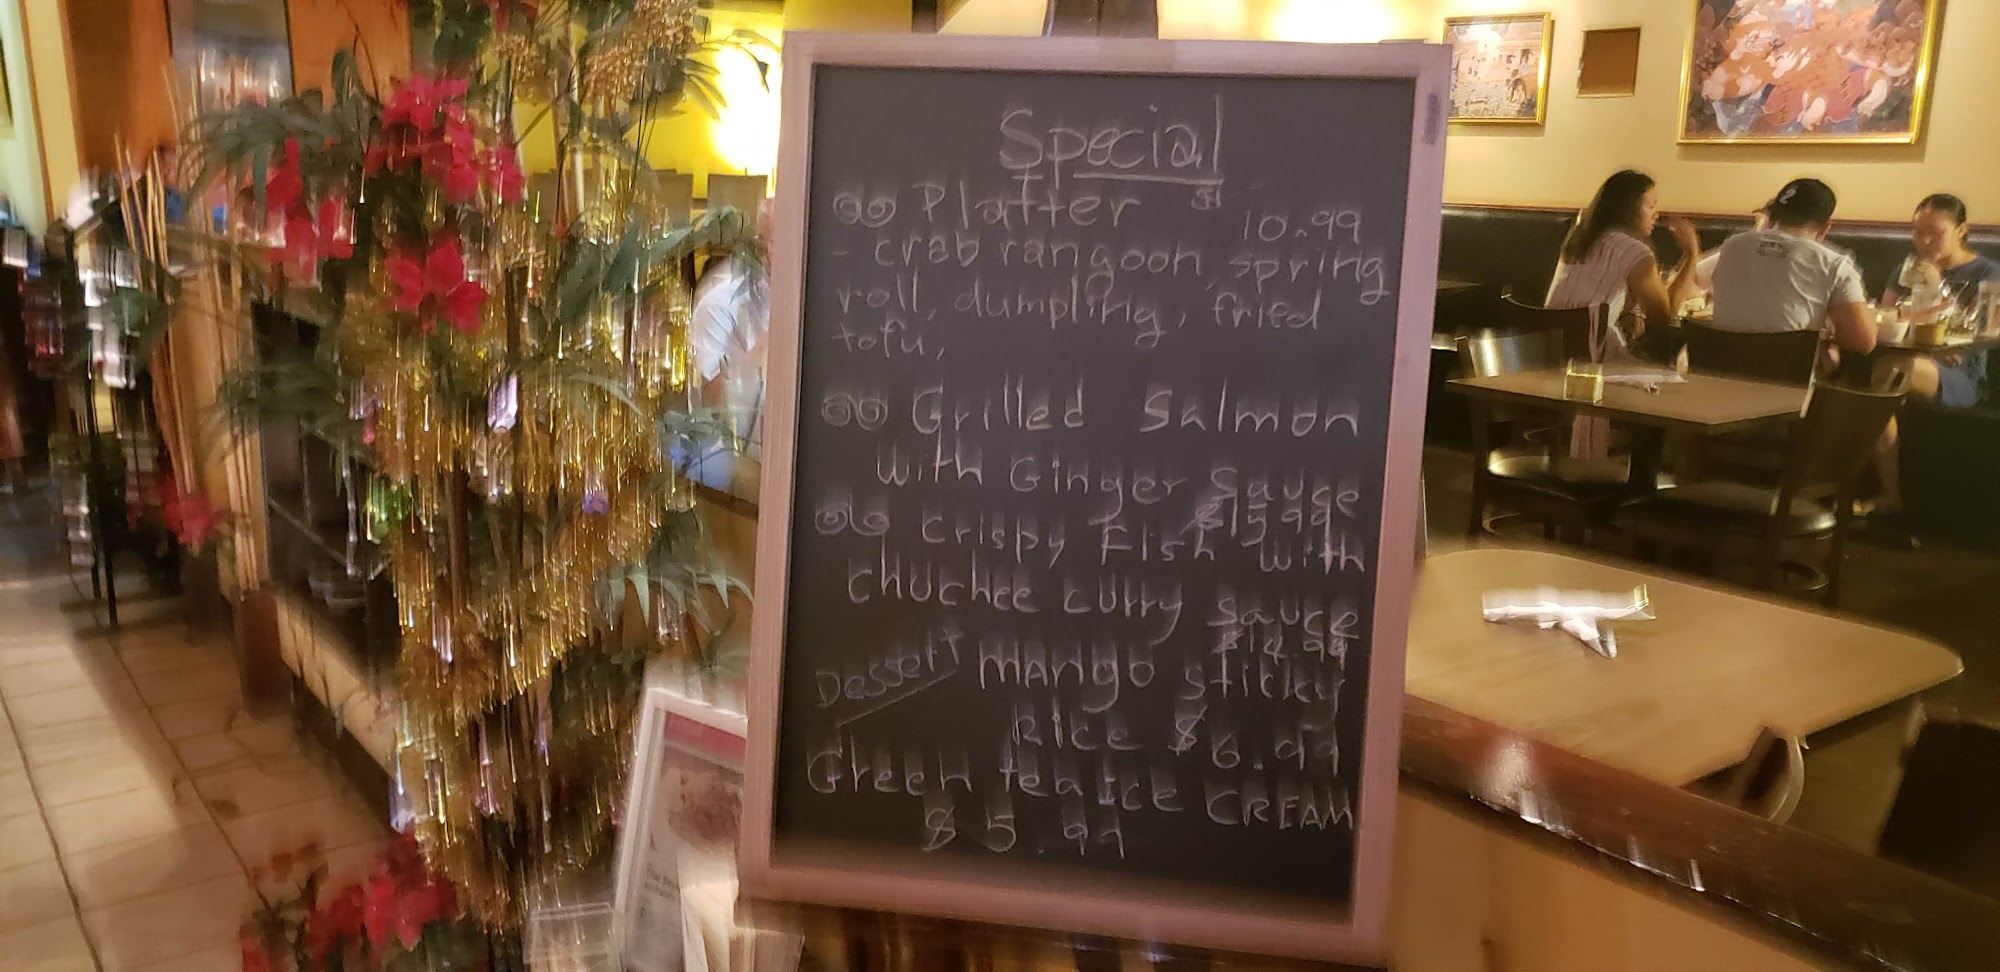 Special
Platter $10.99
- crab rangoon, spring
roll, dumpling, fried
tofu,
Grilled Salmon
with Ginger Sauce
$15.99
Crispy Fish with
chuchee curry sauce
$14.99
Dessert mango sticky
Rice $6.99
Green tea Ice CREAM
$5.99